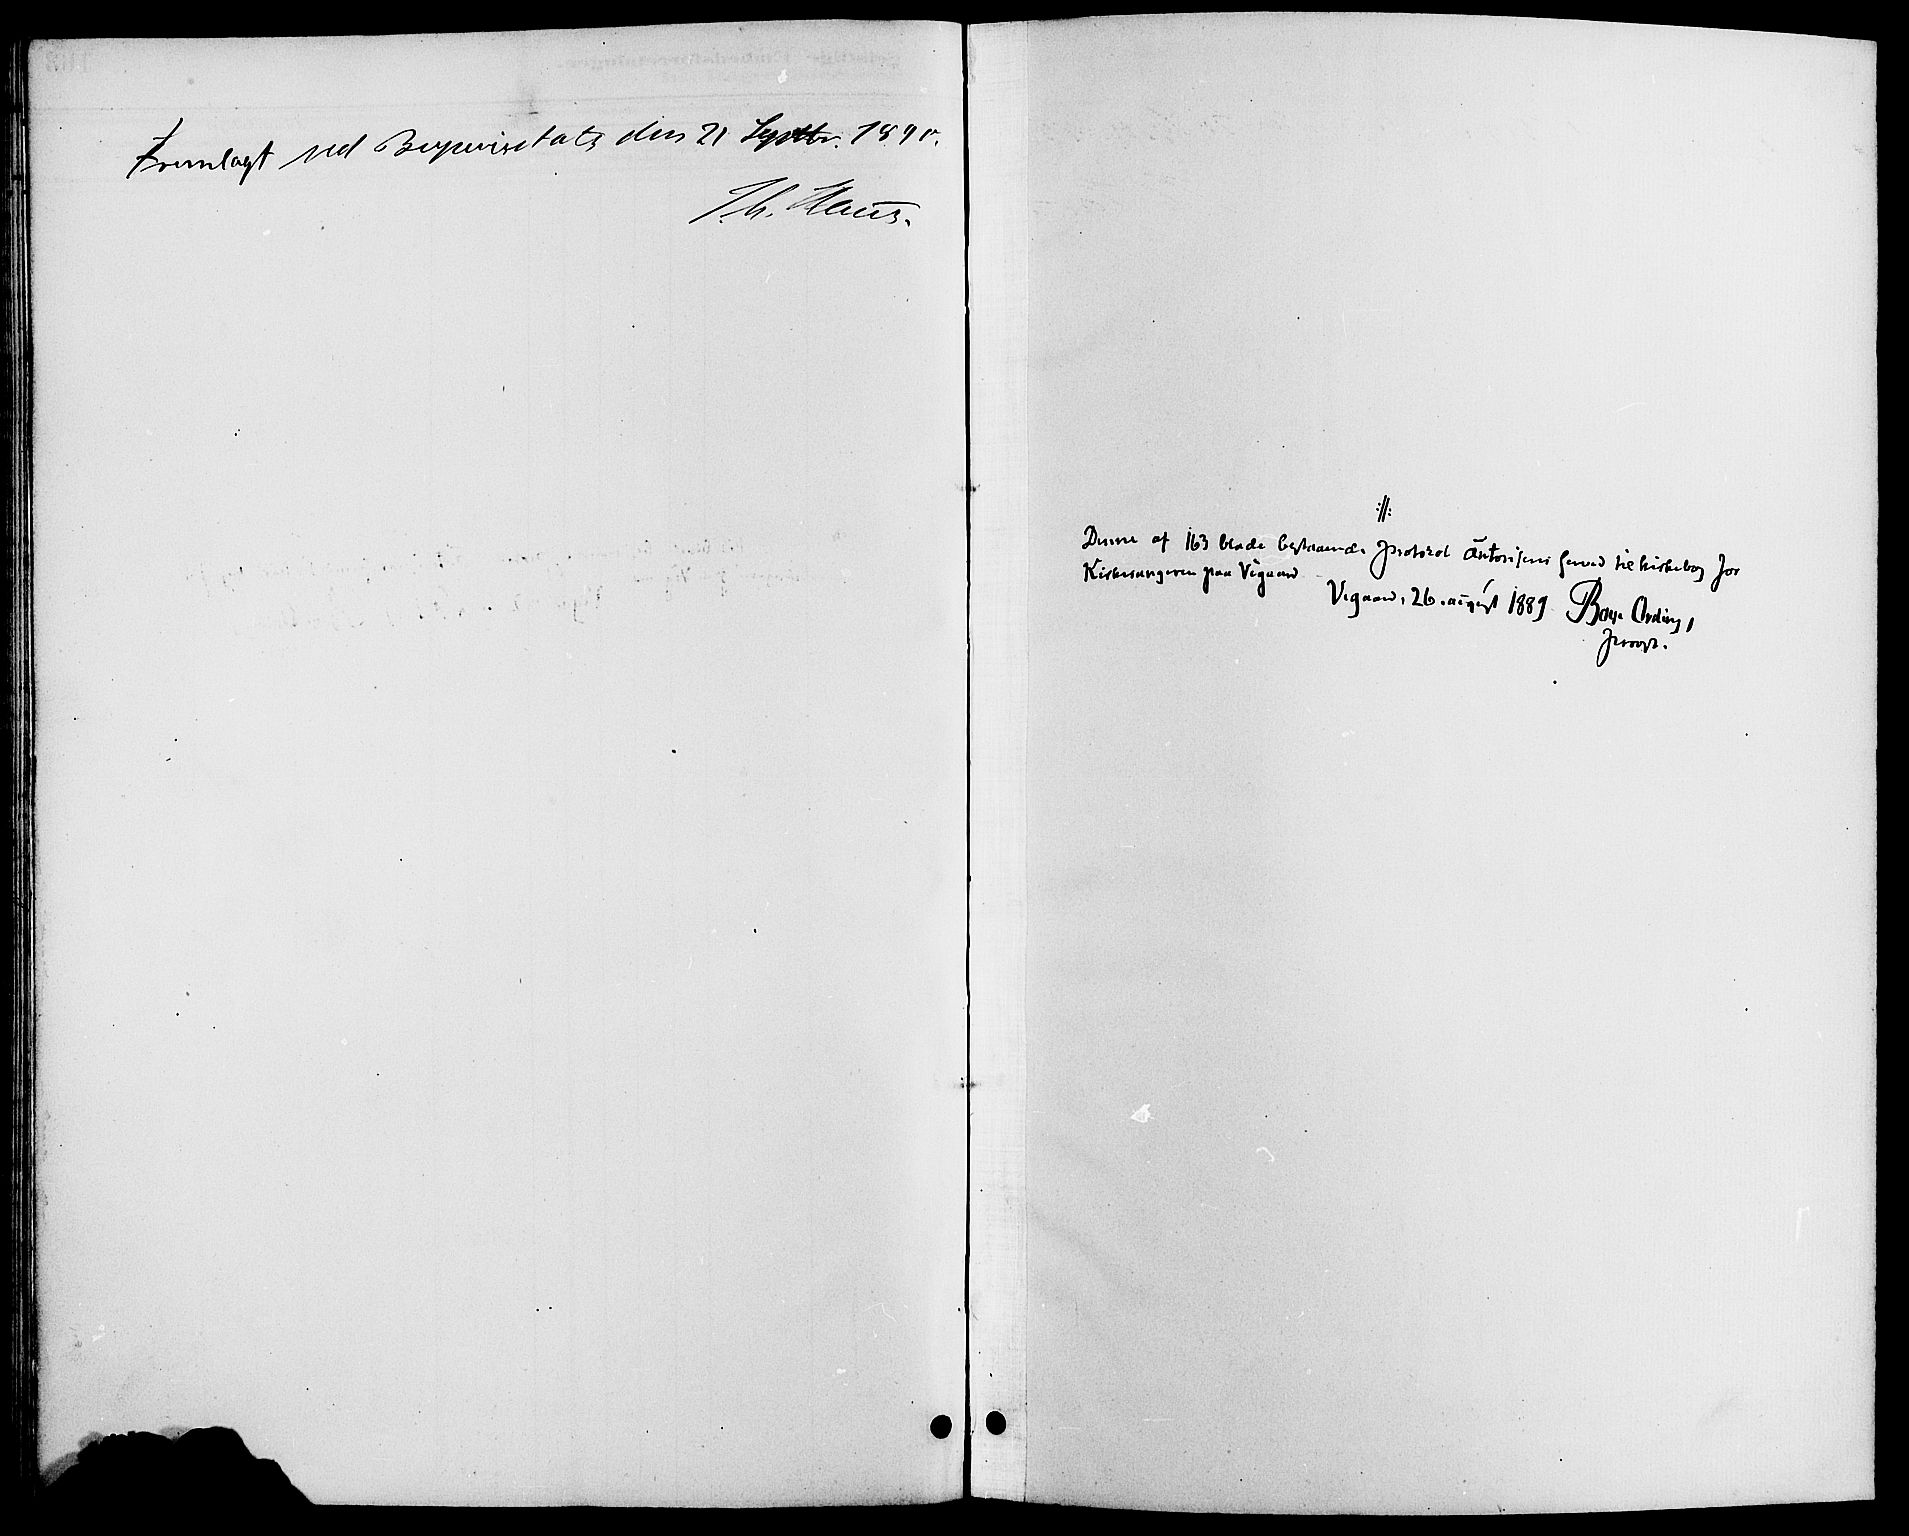 Fremlagt ved Bispevisitats den 21 Septbr. 1890.
Th. Hans.
://:
Denne af 163 blade bestaaende protokol autoriseres herved til kirkebog for
Kirkesangeren paa Vigaard
Vigaard, 26. august 1889 Boye Ording,
provst.